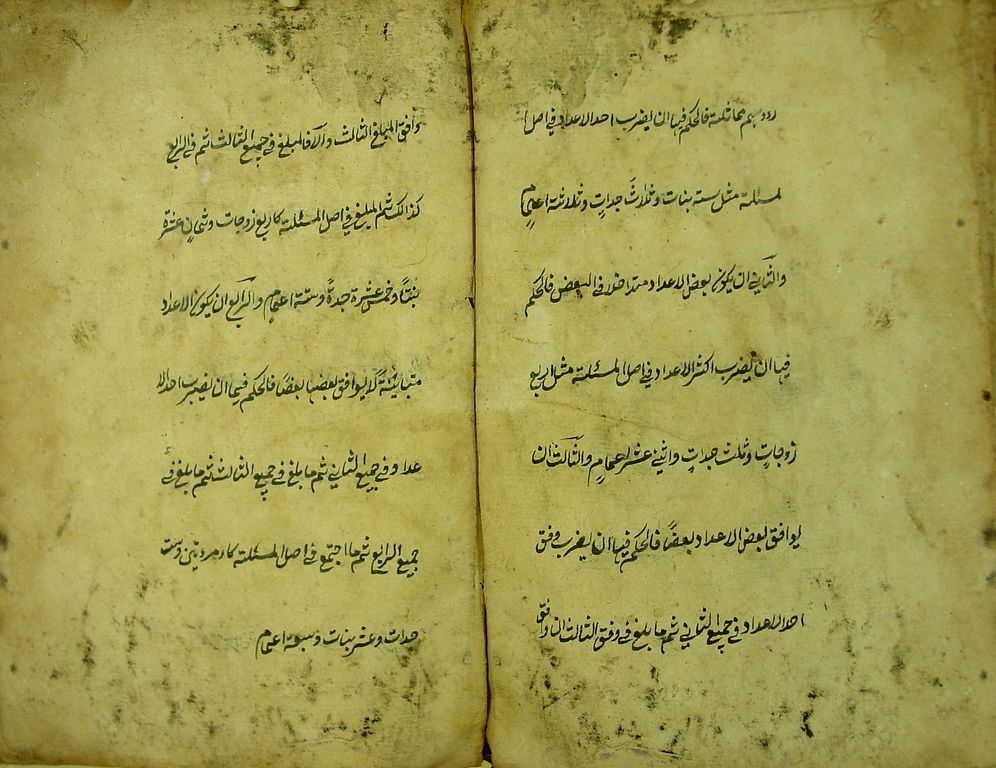 رووسهم مماثلة فالحكم فيها ان يضرب احد الاعداد في اصل ا
لمسئلة مثل ستة بنات وثلاث جدات وثلاثة اعمام
والثاني ان يكون بعض الاعداد متداخلا في البعض فالحكم
فيها ان يضرب اكثر الاعداد في اصل المسئلة مثل اربع
زوجات وثلث جدات واثني عشر اعمام والثالث ان
يوافق بعض الاعداد بعضا فالحكم فيها ان يضرب وفق
احد الاعداد في جميع الثاني ثم ما بلغ في وفق الثالث ان وافق
وافق المبلغ الثالث والا فالمبلغ في جميع الثالث ثم في الرابع
كذالك ثم المبلغ في اصل المسئلة كاربع زوجات وثمان عشرة
بنتا وخمس عشرة جدة وستة اعمام والرابع ان يكون الاعداد
متباينة لا يوافق بعضها بعضا فالحكم فيها ان يضرب احد الا
عداد في جميع الثاني ثم ما بلغ في جميع الثالث ثم ما بلغ في
جميع الرابع ثم ما اجتمع في اصل المسئلة كامرءتين وست
جدات وعشر بنات وسبعة اعمام